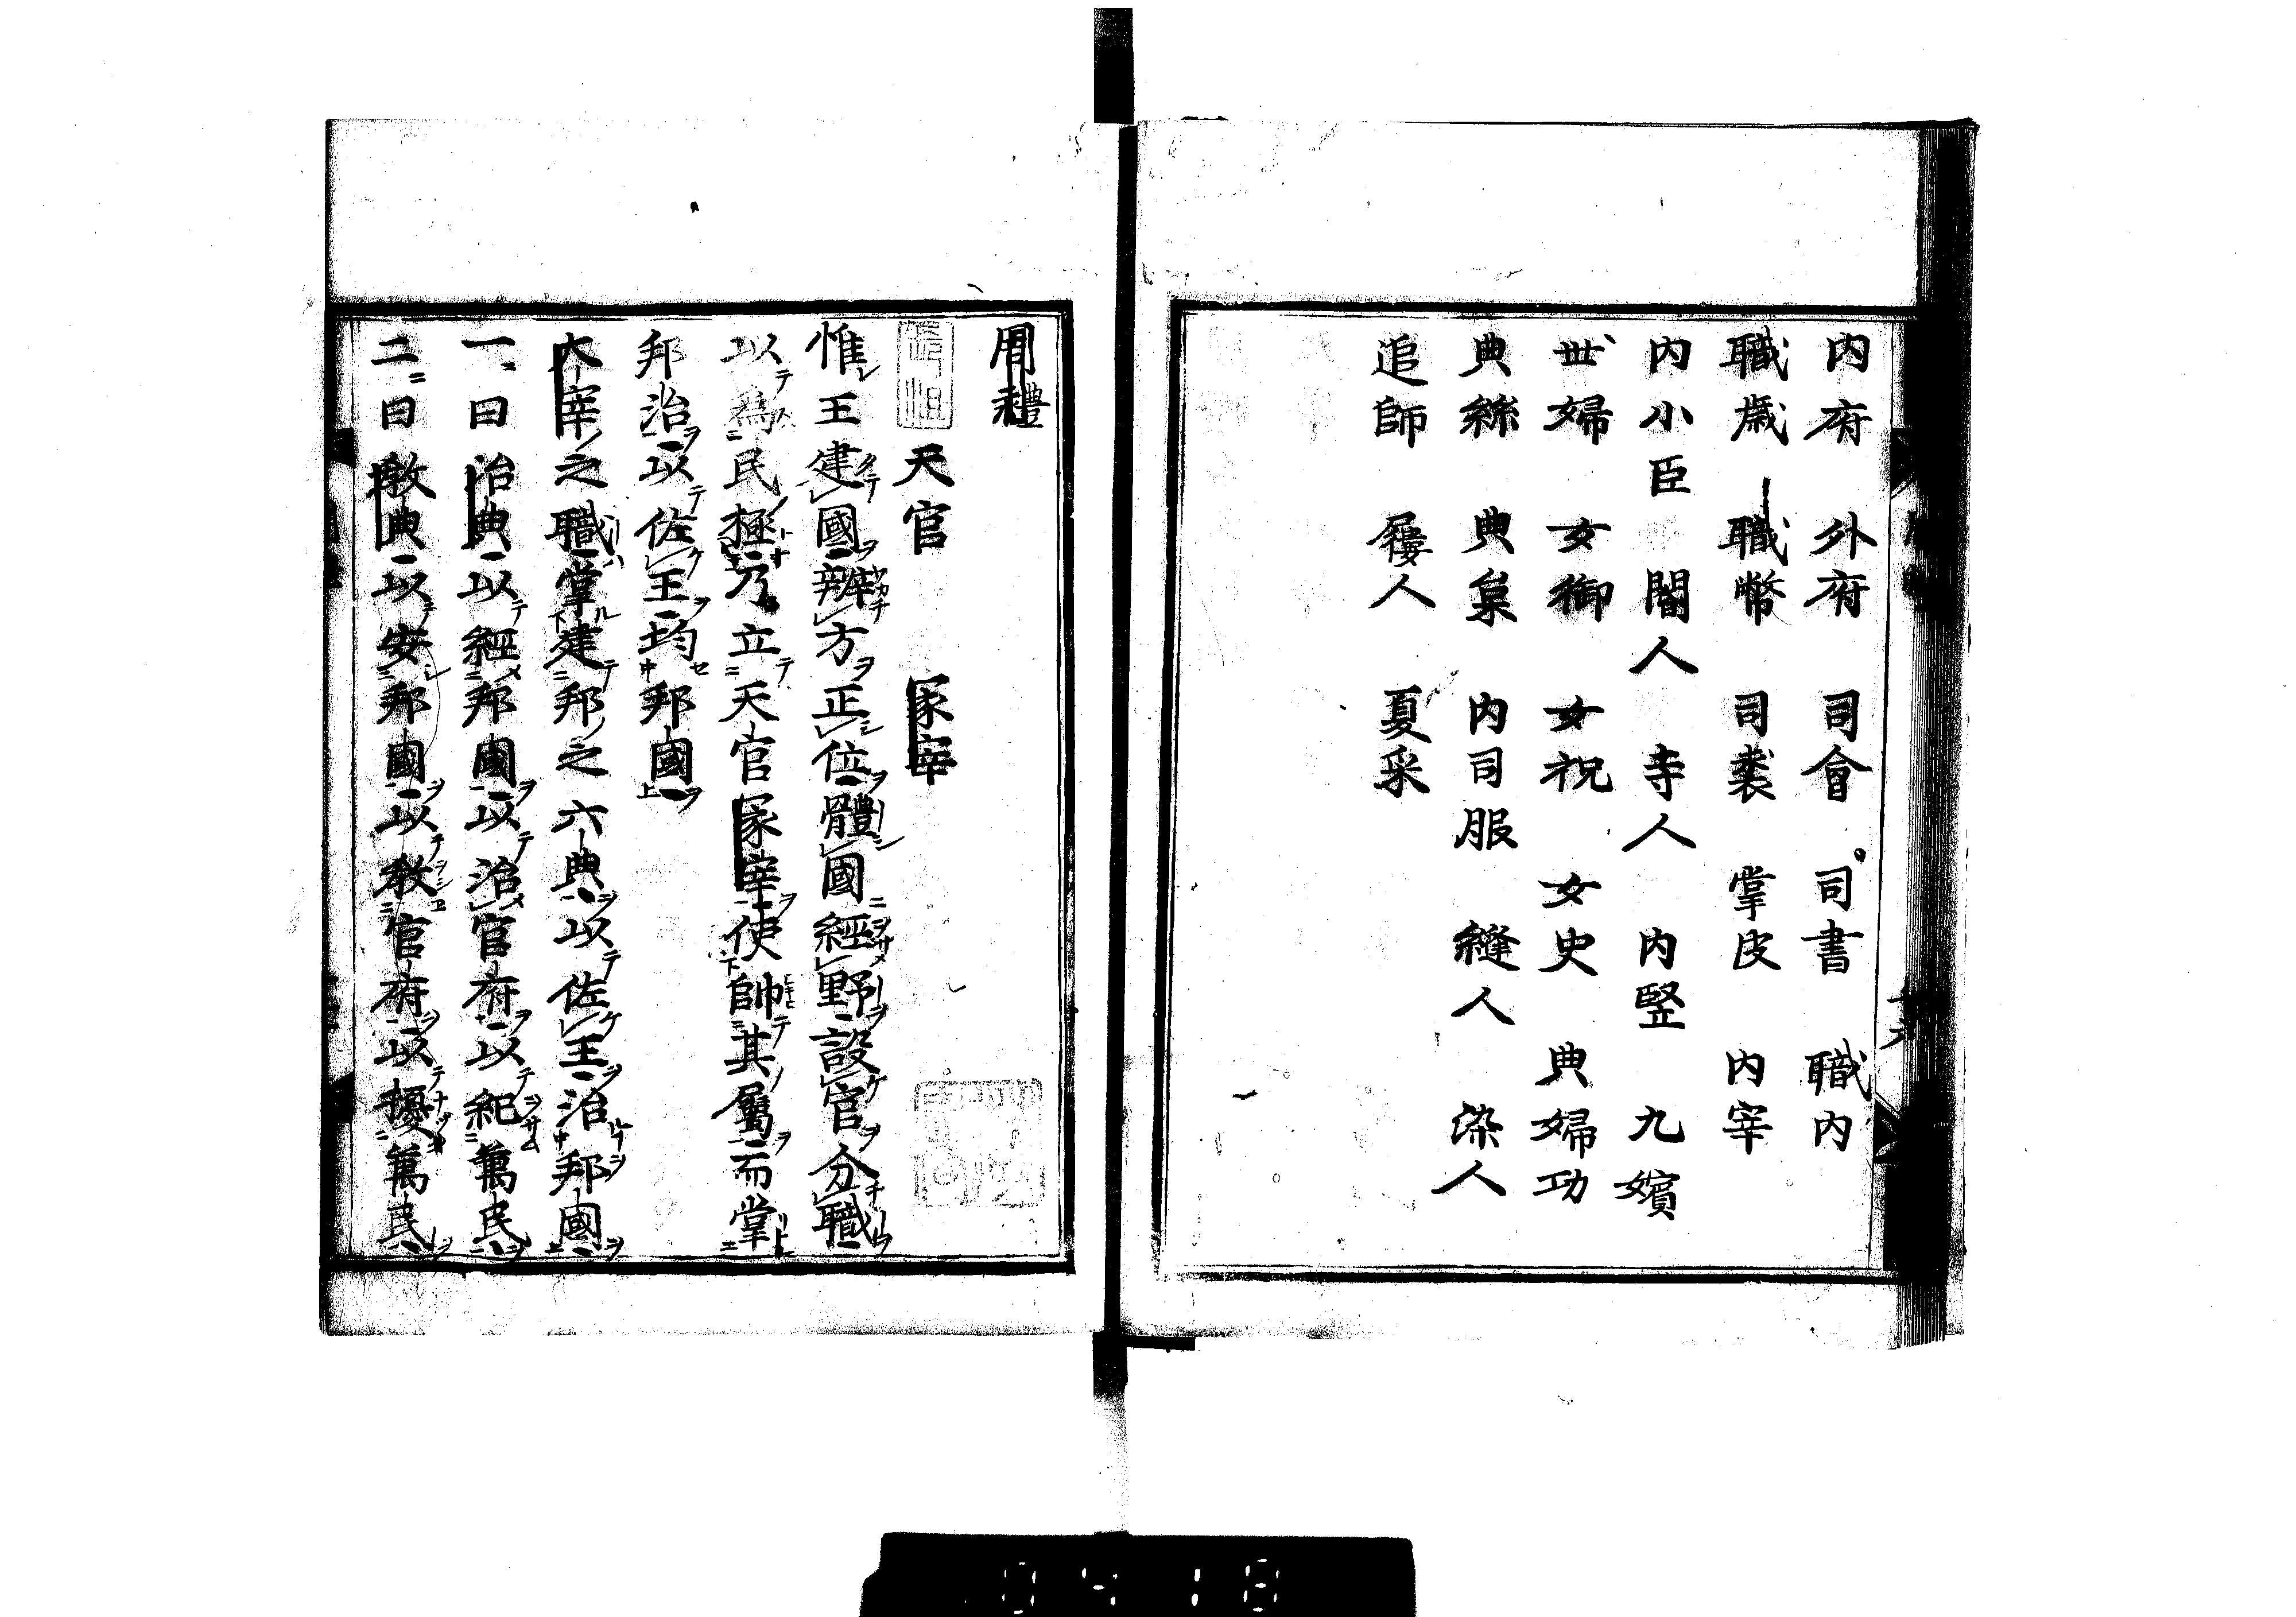 内府　外府　司會　司書　職内
職歳　職幣　司裘　掌皮　内宰
内小臣　閽人　寺人　内竪　九嬪
世婦　女御　女祝　女史　典婦功
典絲　典枲　内司服　縫人　染人
追師　屨人　夏采
周禮
天官　冢宰
惟王建國辨方正位體國經野設官分職
以爲民極乃立天官冢宰使帥其屬而掌
邦治以佐王均邦國
大宰之職掌建邦之六典以佐王治邦國
一曰治典以經邦國以治官府以紀萬民
二曰教典以安邦國以教官府以擾萬民
0418